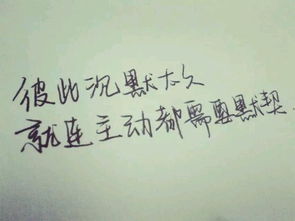 彼此沉默太久
就连主动都需要默契